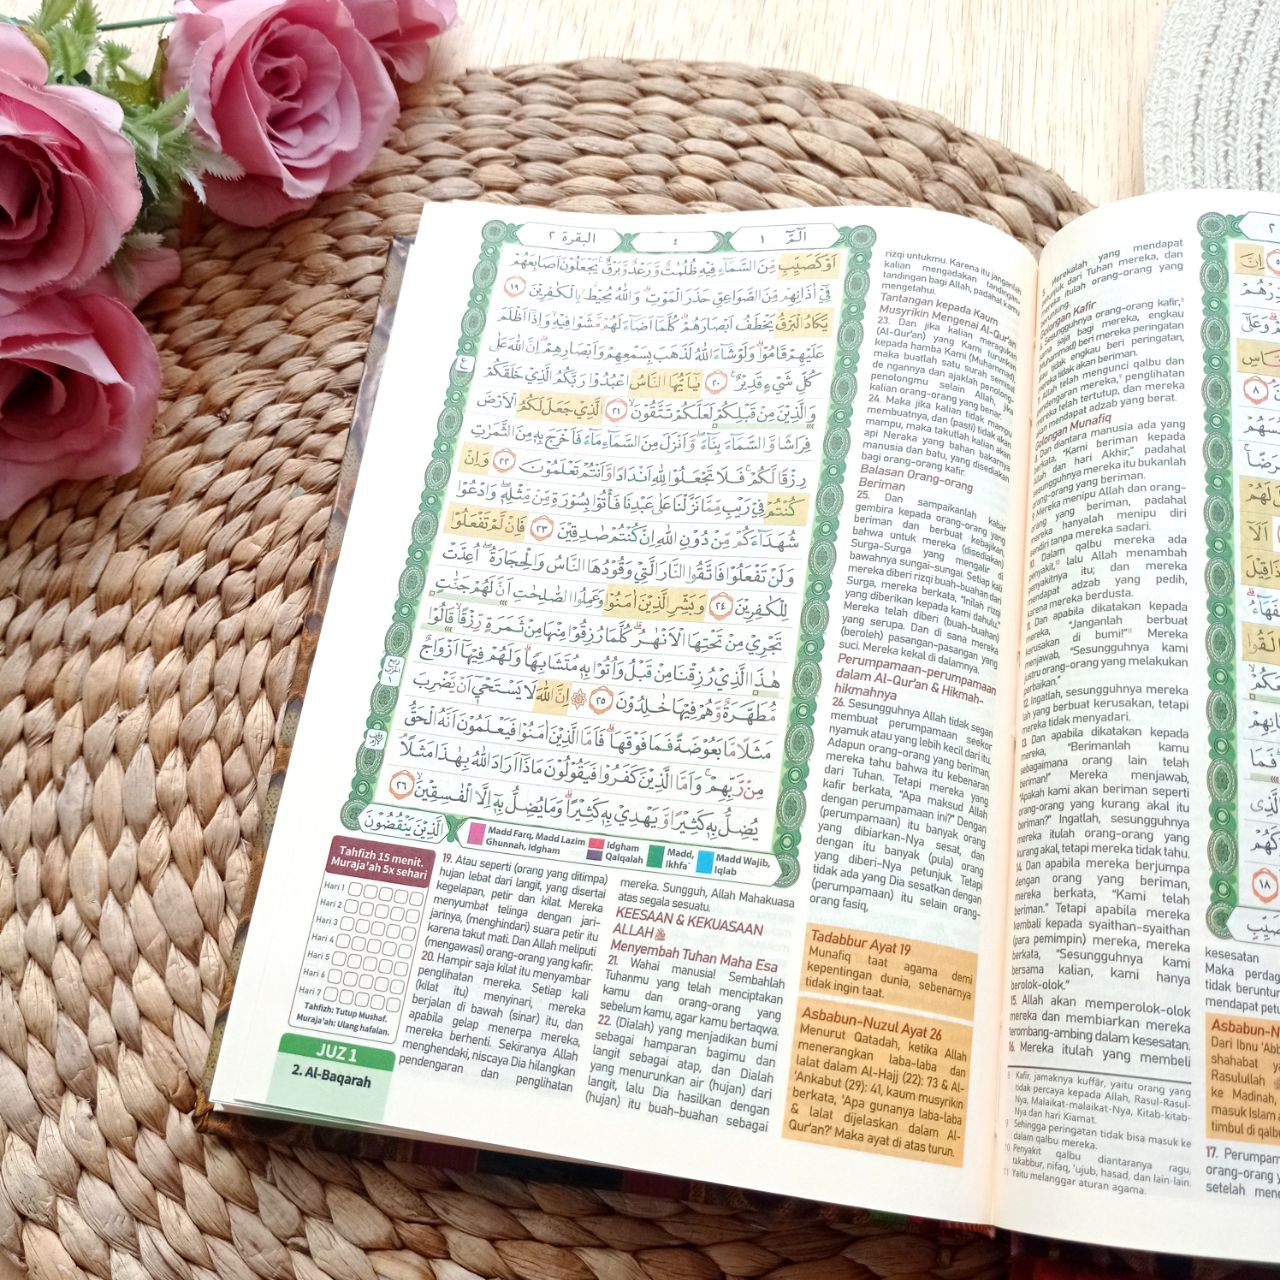 البقرة ٢
٤
الٓمّٓ ١
اَوْ كَصَيِّبٍ مِّنَ السَّمَاۤءِ فِيْهِ ظُلُمٰتٌ وَّرَعْدٌ وَّبَرْقٌۚ يَجْعَلُوْنَ اَصَابِعَهُمْ
فِيْٓ اٰذَانِهِمْ مِّنَ الصَّوَاعِقِ حَذَرَ الْمَوْتِۗ وَاللّٰهُ مُحِيْطٌۢ بِالْكٰفِرِيْنَ ١٩
يَكَادُ الْبَرْقُ يَخْطَفُ اَبْصَارَهُمْۗ كُلَّمَآ اَضَاۤءَ لَهُمْ مَّشَوْا فِيْهِۙ وَاِذَآ اَظْلَمَ
عَلَيْهِمْ قَامُوْاۗ وَلَوْ شَاۤءَ اللّٰهُ لَذَهَبَ بِسَمْعِهِمْ وَاَبْصَارِهِمْۗ اِنَّ اللّٰهَ عَلٰى
كُلِّ شَيْءٍ قَدِيْرٌ ٢٠ يٰٓاَيُّهَا النَّاسُ اعْبُدُوْا رَبَّكُمُ الَّذِيْ خَلَقَكُمْ
وَالَّذِيْنَ مِنْ قَبْلِكُمْ لَعَلَّكُمْ تَتَّقُوْنَۙ ٢١ الَّذِيْ جَعَلَ لَكُمُ الْاَرْضَ
فِرَاشًا وَّالسَّمَاۤءَ بِنَاۤءًۖ وَّاَنْزَلَ مِنَ السَّمَاۤءِ مَاۤءً فَاَخْرَجَ بِهٖ مِنَ الثَّمَرٰتِ
رِزْقًا لَّكُمْۚ فَلَا تَجْعَلُوْا لِلّٰهِ اَنْدَادًا وَّاَنْتُمْ تَعْلَمُوْنَ ٢٢ وَاِنْ
كُنْتُمْ فِيْ رَيْبٍ مِّمَّا نَزَّلْنَا عَلٰى عَبْدِنَا فَأْتُوْا بِسُوْرَةٍ مِّنْ مِّثْلِهٖۖ وَادْعُوْا
شُهَدَاۤءَكُمْ مِّنْ دُوْنِ اللّٰهِ اِنْ كُنْتُمْ صٰدِقِيْنَ ٢٣ فَاِنْ لَّمْ تَفْعَلُوْا
وَلَنْ تَفْعَلُوْا فَاتَّقُوا النَّارَ الَّتِيْ وَقُوْدُهَا النَّاسُ وَالْحِجَارَةُۖ اُعِدَّتْ
لِلْكٰفِرِيْنَ ٢٤ وَبَشِّرِ الَّذِيْنَ اٰمَنُوْا وَعَمِلُوا الصّٰلِحٰتِ اَنَّ لَهُمْ جَنّٰتٍ
تَجْرِيْ مِنْ تَحْتِهَا الْاَنْهٰرُۗ كُلَّمَا رُزِقُوْا مِنْهَا مِنْ ثَمَرَةٍ رِّزْقًاۙ قَالُوْا
هٰذَا الَّذِيْ رُزِقْنَا مِنْ قَبْلُ وَاُتُوْا بِهٖ مُتَشَابِهًاۗ وَلَهُمْ فِيْهَآ اَزْوَاجٌ
مُّطَهَّرَةٌ وَّهُمْ فِيْهَا خٰلِدُوْنَ ٢٥ اِنَّ اللّٰهَ لَا يَسْتَحْيٖٓ اَنْ يَّضْرِبَ
مَثَلًا مَّا بَعُوْضَةً فَمَا فَوْقَهَاۗ فَاَمَّا الَّذِيْنَ اٰمَنُوْا فَيَعْلَمُوْنَ اَنَّهُ الْحَقُّ
مِنْ رَّبِّهِمْۚ وَاَمَّا الَّذِيْنَ كَفَرُوْا فَيَقُوْلُوْنَ مَاذَآ اَرَادَ اللّٰهُ بِهٰذَا مَثَلًاۘ
يُضِلُّ بِهٖ كَثِيْرًا وَّيَهْدِيْ بِهٖ كَثِيْرًاۗ وَمَا يُضِلُّ بِهٖٓ اِلَّا الْفٰسِقِيْنَۙ ٢٦
الَّذِيْنَ يَنْقُضُوْنَ
Madd Farq, Madd Lazim
Ghunnah, Idgham
Idgham
Qalqalah
Madd,
Ikhfa'
Madd Wajib,
Iqlab
Tahfizh 15 menit.
Muraja'ah 5x sehari
Hari 1
Hari 2
Hari 3
Hari 4
Hari 5
Hari 6
Hari 7
Tahfizh: Tutup Mushaf.
Muraja'ah: Ulang hafalan.
JUZ 1
2. Al-Baqarah
19. Atau seperti (orang yang ditimpa)
hujan lebat dari langit, yang disertai
kegelapan, petir dan kilat. Mereka
menyumbat telinga dengan jari-
jarinya, (menghindari) suara petir itu
karena takut mati. Dan Allah meliputi
(mengawasi) orang-orang yang kafir.
20. Hampir saja kilat itu menyambar
penglihatan mereka. Setiap kali
(kilat itu) menyinari, mereka
berjalan di bawah (sinar) itu, dan
apabila gelap menerpa mereka,
mereka berhenti. Sekiranya Allah
menghendaki, niscaya Dia hilangkan
pendengaran dan penglihatan
mereka. Sungguh, Allah Mahakuasa
atas segala sesuatu.
KEESAAN & KEKUASAAN
ALLAH ﷻ
Menyembah Tuhan Maha Esa
21. Wahai manusia! Sembahlah
Tuhanmu yang telah menciptakan
kamu dan orang-orang yang
sebelum kamu, agar kamu bertaqwa.
22. (Dialah) yang menjadikan bumi
sebagai hamparan bagimu dan
langit sebagai atap, dan Dialah
yang menurunkan air (hujan) dari
langit, lalu Dia hasilkan dengan
(hujan) itu buah-buahan sebagai
rizqi untukmu. Karena itu janganlah
kalian mengadakan tandingan-
tandingan bagi Allah, padahal kamu
mengetahui.
Tantangan kepada Kaum
Musyrikin Mengenai Al-Qur'an
23. Dan jika kalian meragukan
(Al-Qur'an) yang Kami turunkan
kepada hamba Kami (Muhammad),
maka buatlah satu surah semisal
de ngannya dan ajaklah penolong-
penolongmu selain Allah, jika
kalian orang-orang yang benar.
24. Maka jika kalian tidak mampu
membuatnya, dan (pasti) tidak akan
mampu, maka takutlah kalian akan
api Neraka yang bahan bakarnya
manusia dan batu, yang disediakan
bagi orang-orang kafir.
Balasan Orang-orang
Beriman
25. Dan sampaikanlah kabar
gembira kepada orang-orang yang
beriman dan berbuat kebajikan,
bahwa untuk mereka (disediakan)
Surga-Surga yang mengalir di
bawahnya sungai-sungai. Setiap kali
mereka diberi rizqi buah-buahan dari
Surga, mereka berkata, "Inilah rizqi
yang diberikan kepada kami dahulu."
Mereka telah diberi (buah-buahan)
yang serupa. Dan di sana mereka
(beroleh) pasangan-pasangan yang
suci. Mereka kekal di dalamnya.
Perumpamaan-perumpamaan
dalam Al-Qur'an & Hikmah-
hikmahnya
26. Sesungguhnya Allah tidak segan
membuat perumpamaan seekor
nyamuk atau yang lebih kecil dari itu.
Adapun orang-orang yang beriman,
mereka tahu bahwa itu kebenaran
dari Tuhan. Tetapi mereka yang
kafir berkata, "Apa maksud Allah
dengan perumpamaan ini?" Dengan
(perumpamaan) itu banyak orang
yang dibiarkan-Nya sesat, dan
dengan itu banyak (pula) orang
yang diberi-Nya petunjuk. Tetapi
tidak ada yang Dia sesatkan dengan
(perumpamaan) itu selain orang-
orang fasiq,
Tadabbur Ayat 19
Munafiq taat agama demi
kepentingan dunia, sebenarnya
tidak ingin taat.
Asbabun-Nuzul Ayat 26
Menurut Qatadah, ketika Allah
menerangkan laba-laba dan
lalat dalam Al-Hajj (22): 73 & Al-
'Ankabut (29): 41, kaum musyrikin
berkata, 'Apa gunanya laba-laba
& lalat dijelaskan dalam Al-
Qur'an?' Maka ayat di atas turun.
Merekalah yang mendapat
dari Tuhan mereka, dan
itulah orang-orang yang
Kafir
Sesungguhnya orang-orang kafir,
saja bagi mereka, engkau
beri mereka peringatan,
engkau beri peringatan,
tidak akan beriman.
telah mengunci qalbu dan
mereka, penglihatan
telah tertutup, dan mereka
mendapat adzab yang berat.
Golongan Munafiq
diantara manusia ada yang
"Kami beriman kepada
dan hari Akhir," padahal
sesungguhnya mereka itu bukanlah
orang-orang yang beriman.
Mereka menipu Allah dan orang-
yang beriman, padahal
hanyalah menipu diri
sendiri tanpa mereka sadari.
10. Dalam qalbu mereka ada
lalu Allah menambah
penyakitnya itu; dan mereka
mendapat adzab yang pedih,
karena mereka berdusta.
Dan apabila dikatakan kepada
mereka, "Janganlah berbuat
kerusakan di bumi!" Mereka
menjawab, "Sesungguhnya kami
orang-orang yang melakukan
perbaikan."
12. Ingatlah, sesungguhnya mereka
yang berbuat kerusakan, tetapi
mereka tidak menyadari.
13. Dan apabila dikatakan kepada
mereka, "Berimanlah kamu
sebagaimana orang lain telah
beriman!" Mereka menjawab,
"Apakah kami akan beriman seperti
orang-orang yang kurang akal itu
beriman?" Ingatlah, sesungguhnya
mereka itulah orang-orang yang
kurang akal, tetapi mereka tidak tahu.
14. Dan apabila mereka berjumpa
dengan orang yang beriman,
mereka berkata, "Kami telah
beriman." Tetapi apabila mereka
kembali kepada syaithan-syaithan
(para pemimpin) mereka, mereka
berkata, "Sesungguhnya kami
bersama kalian, kami hanya
berolok-olok."
15. Allah akan memperolok-olok
mereka dan membiarkan mereka
terombang-ambing dalam kesesatan.
16. Mereka itulah yang membeli
Kafir, jamaknya kuffâr, yaitu orang yang
tidak percaya kepada Allah, Rasul-Rasul-
Nya, Malaikat-malaikat-Nya, Kitab-kitab-
Nya dan hari Kiamat.
Sehingga peringatan tidak bisa masuk ke
dalam qalbu mereka.
Penyakit qalbu diantaranya ragu,
takabbur, nifaq, 'ujub, hasad, dan lain-lain.
Yaitu melanggar aturan agama.
١٨
kesesatan
Maka perdag
tidak beruntun
mendapat petu
Asbabun-N
Dari Ibnu 'Abb
shahabat ya
Rasulullah
ke Madinah,
masuk Islam,
timbul di qalbu
17. Perumpam
orang-orang y
setelah men